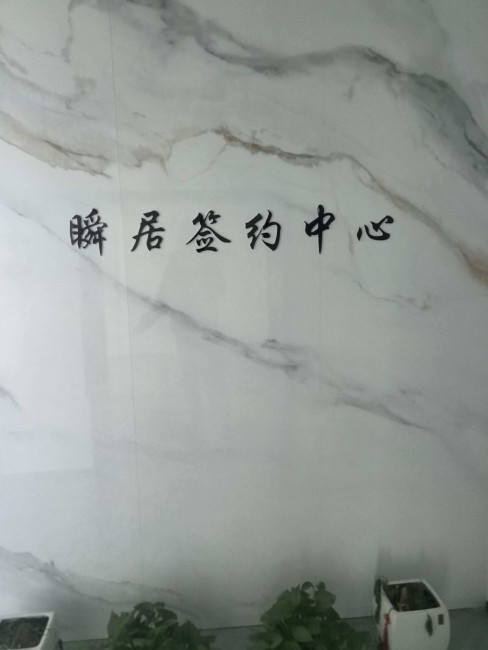 瞬居签约中心